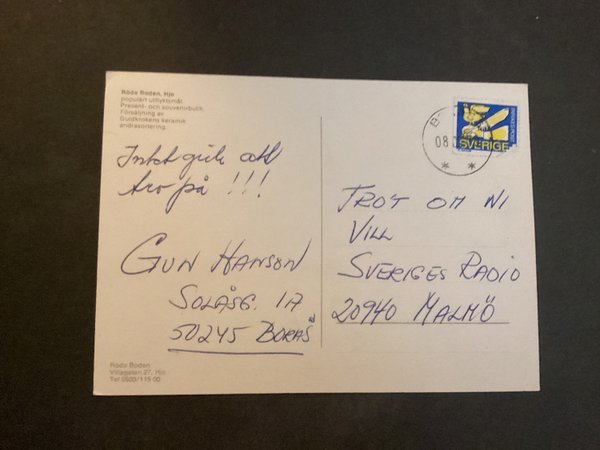 Röda Boden, Hjo
populärt utflyktsmål.
Present- och souvenirbutik.
Försäljning av
Guldkrokens keramik
andrasortering
tro på !!!
GUN HANSON
SOLÅSG. 1A
50245 BORÅS
TROT OM NI
VILL
SVERIGES RADIO
20940 MALMÖ
SVERIGE
08.1
Röda Boden
Villagatan 27, Hjo
Tel 0503/115 00